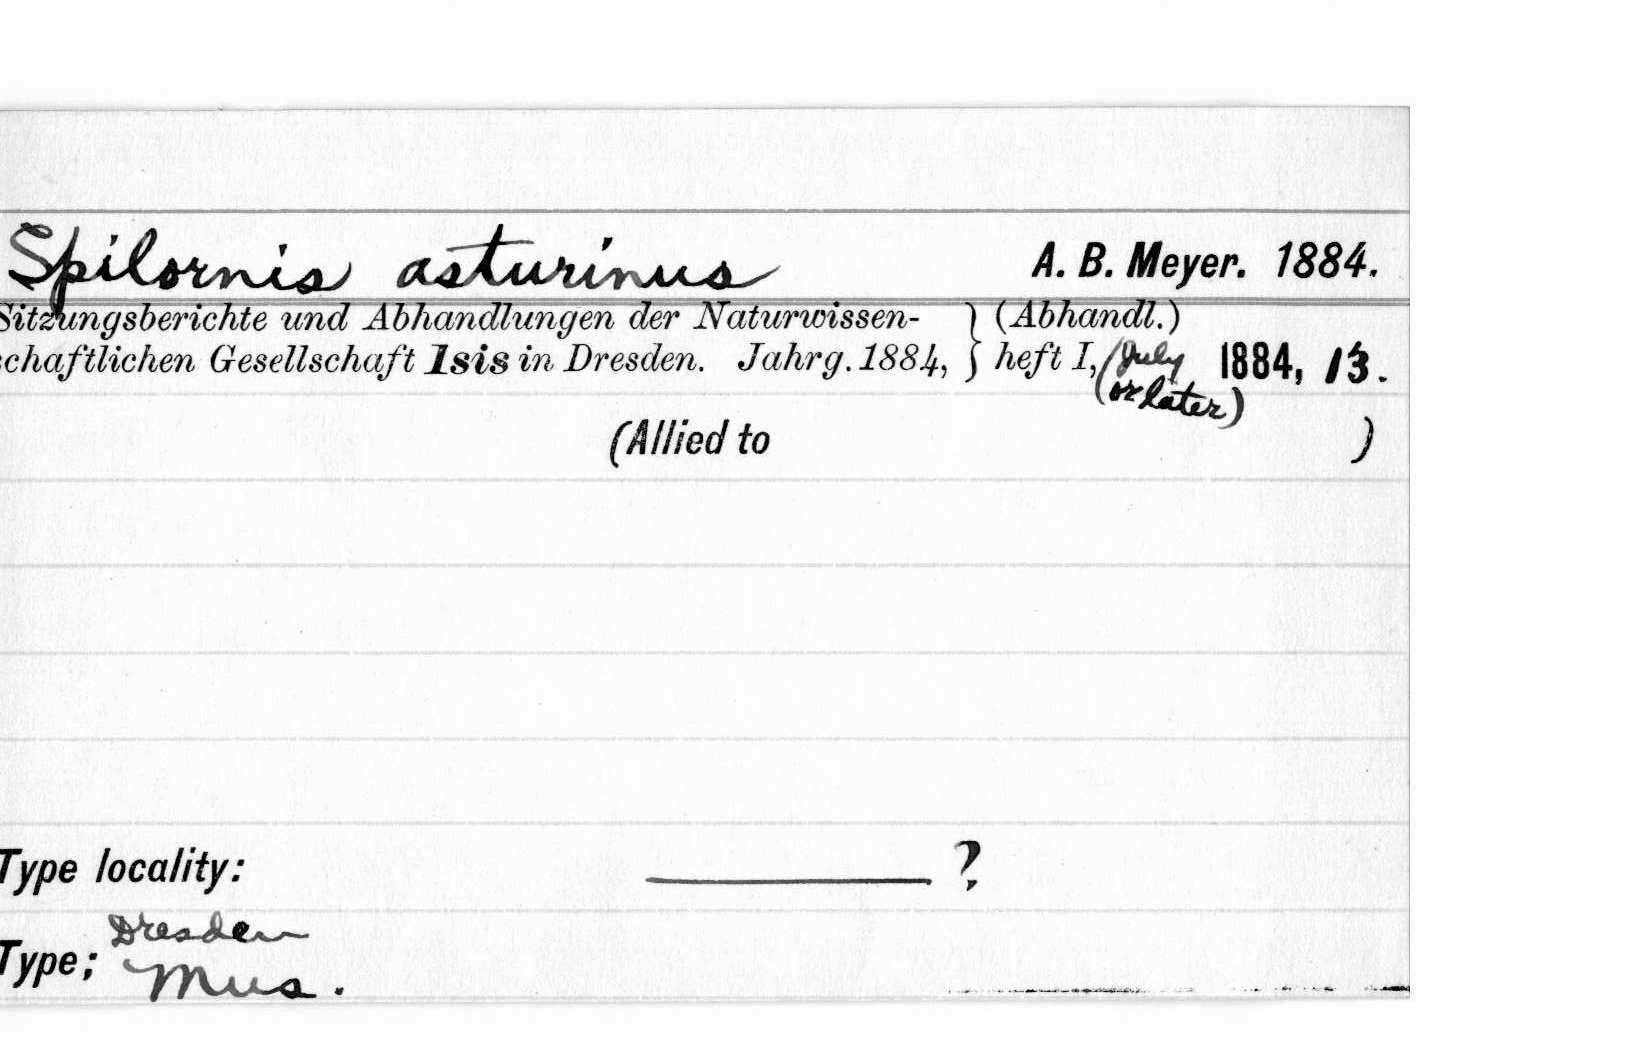 Spilornis asturinus A. B. Meyer. 1884.
Sitzungsberichte und Abhandlungen der Naturwissen- } (Abhandl.)
schaftlichen Gesellschaft Isis in Dresden. Jahrg. 1884, } heft I, (July 1884, 13.
(or later)
(Allied to )
Type locality: ______ ?
Dresden
Type; Mus.